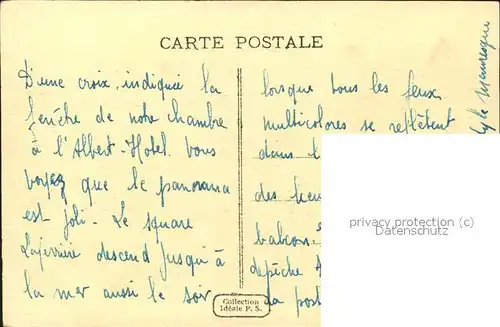 CARTE POSTALE
D'une croix, indiquée la
fenêtre de notre chambre
à l'Albert-Hotel. Vous
voyez que le panorama
est joli. Le square
Laferrière descend jusqu'à
la mer aussi le soir
lorsque tous les feux
multicolores se reflètent
dans l
des heu
balcon.
dépêche
da post
style mauresque
privacy protection (c)
Datenschutz
Collection
Idéale P. S.